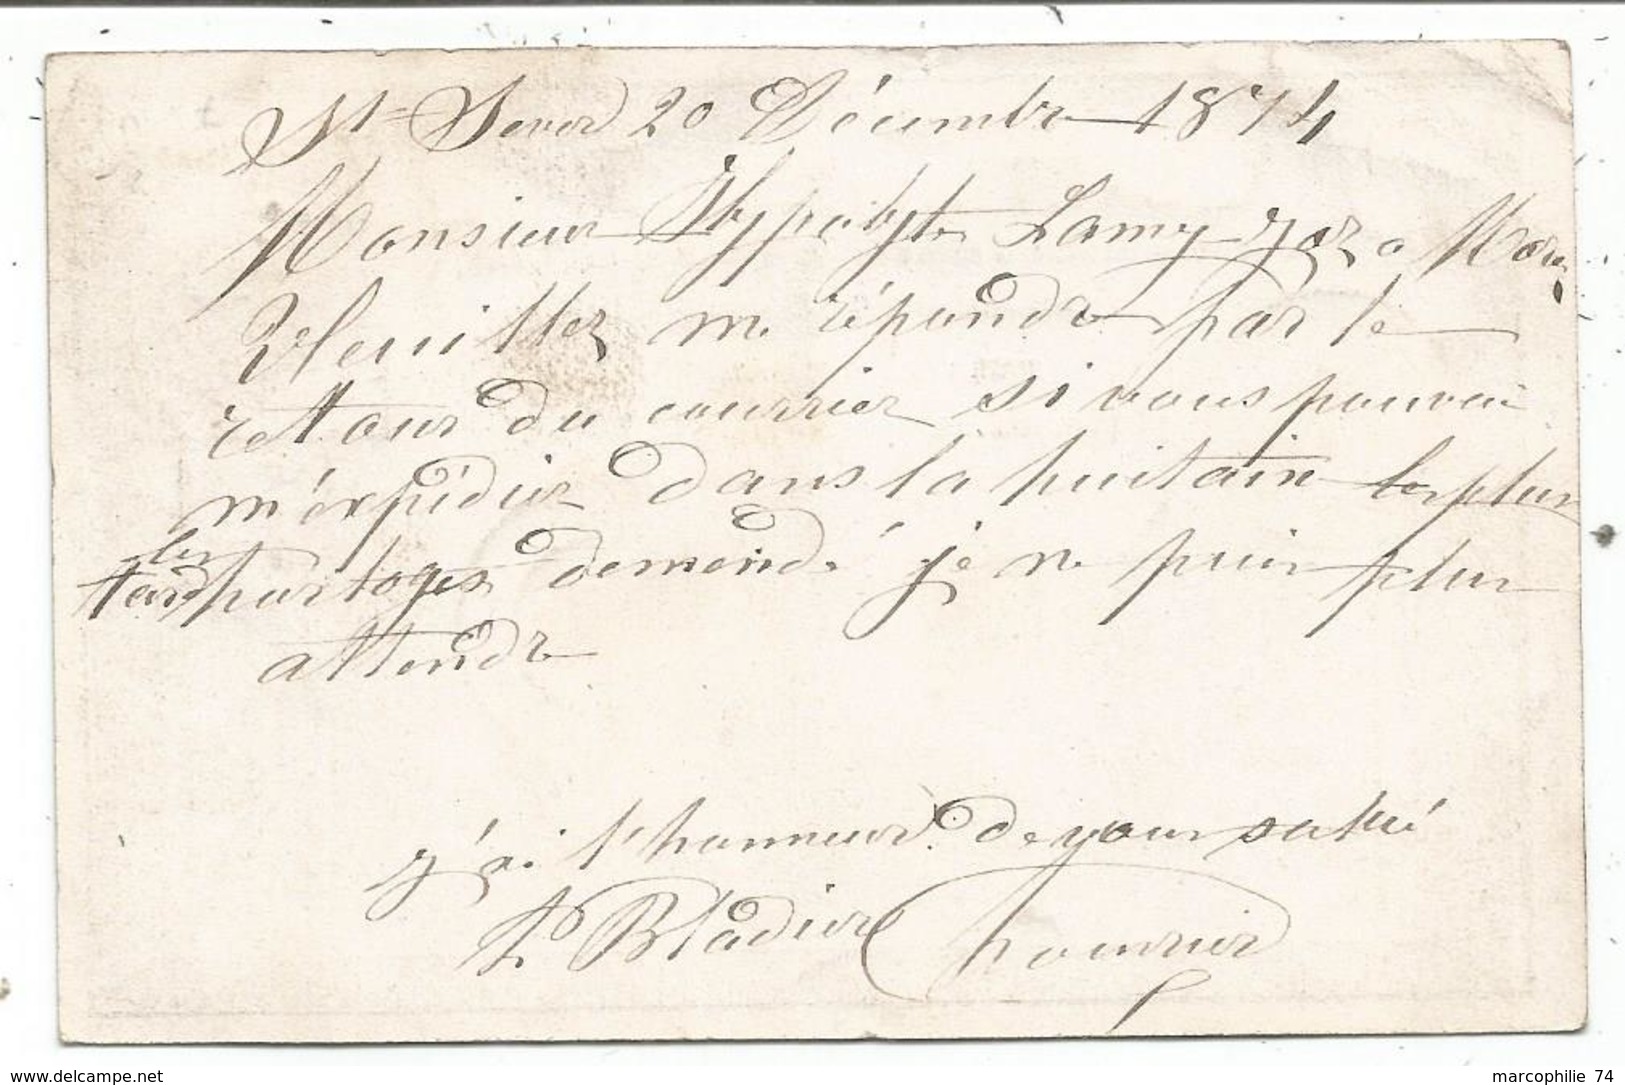 St Sever 20 Décembre 1874
Monsieur Hyppolyte Lamy Joz a Morez
Veuillez me répondre par le
retour du courrier si vous pouvei
m'expédier dans la huitain plus
tard les horloges demendé je ne puis plus
attendre
j'ai l'honneur de vous salué
Bladier
www.delcampe.net
marcophilie 74